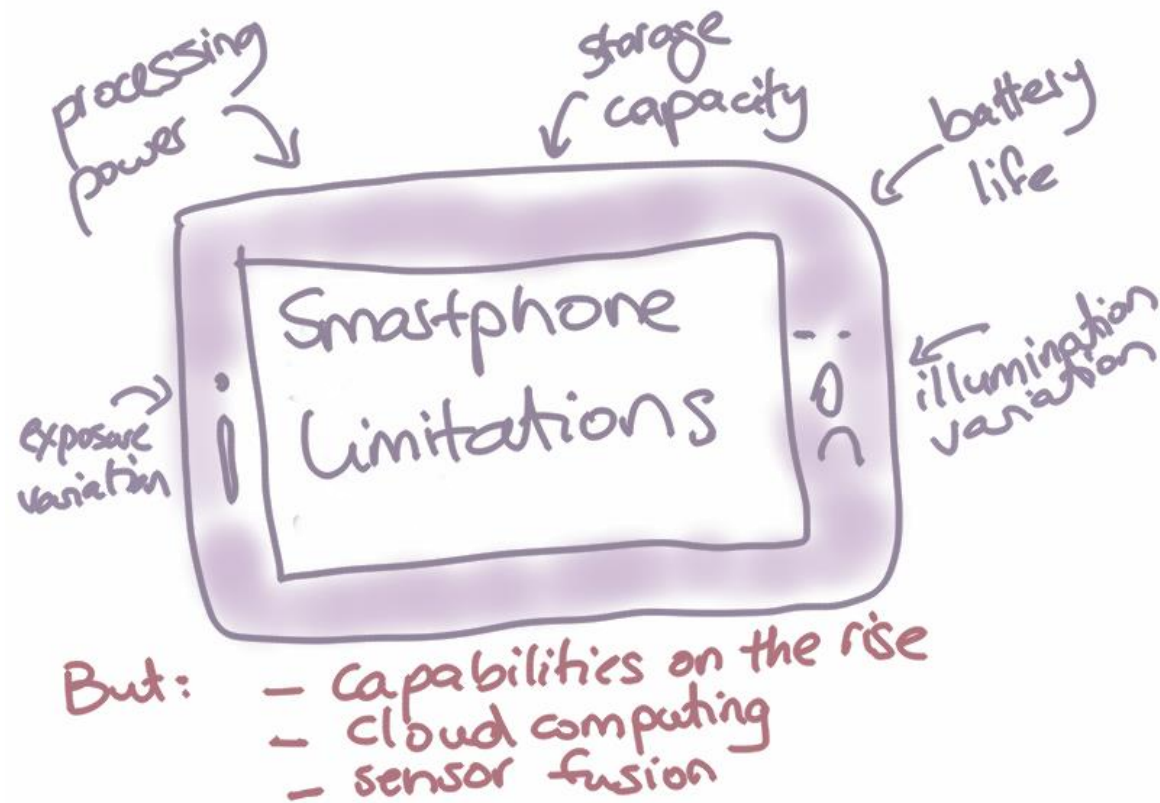 processing
power
storage
capacity
battery
life
Smartphone
Limitations
exposure
variation
illumination
variation
But:
- Capabilities on the rise
- Cloud computing
- sensor fusion